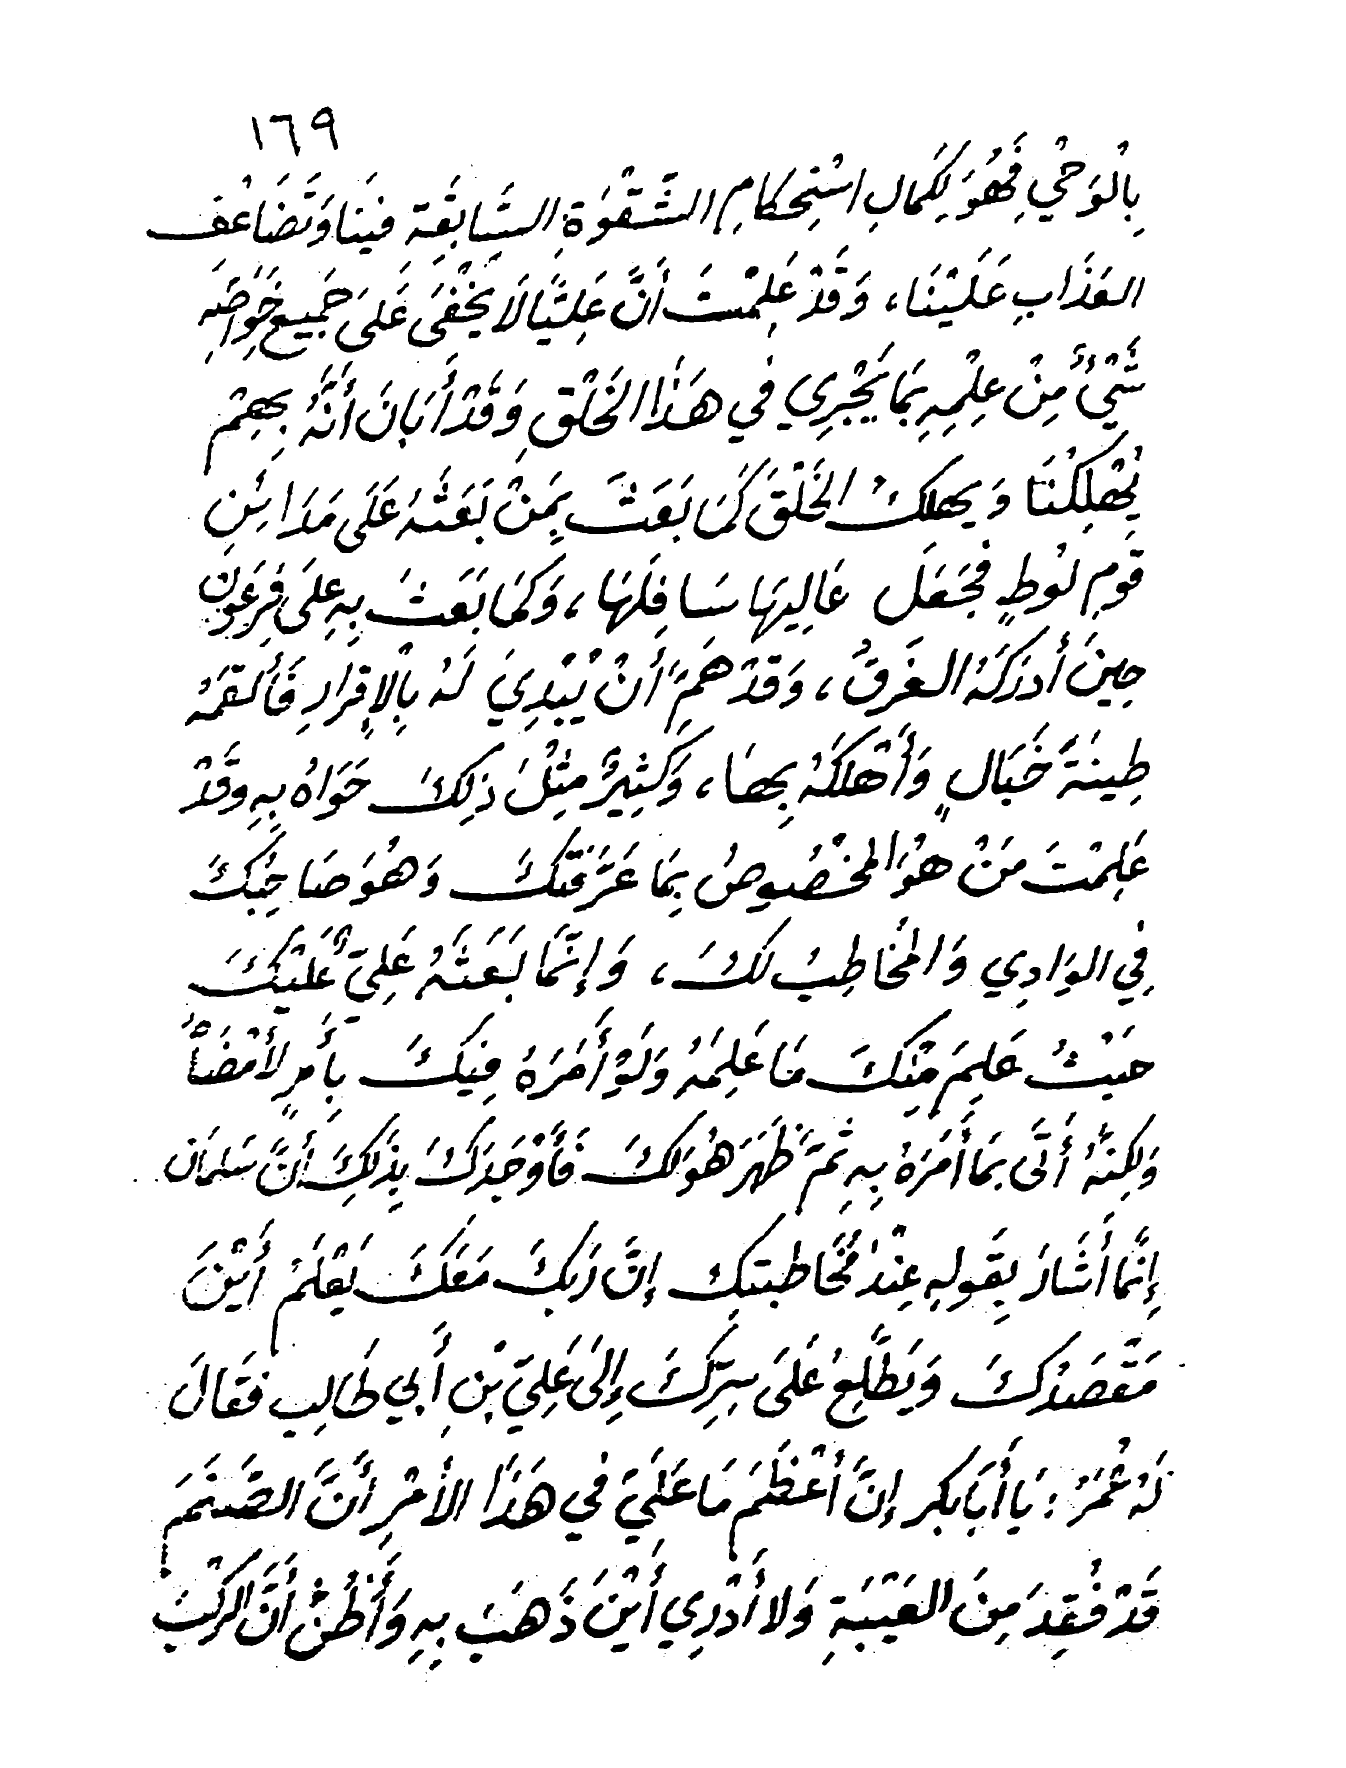 ١٦٩
بِالْوَحْيِ فَهُوَ لِكَمَالِ اسْتِحْكَامِ الشَّقْوَةِ السَّابِقَةِ فِينَا وَتَضَاعُفِ
العَذَابِ عَلَيْنَا، وَقَدْ عَلِمْتَ أَنَّ عَلِيًّا لَا يَخْفَى عَلَى جَمِيعِ خَوَاصِّهِ
شَيْءٌ مِنْ عِلْمِهِ بِمَا يَجْرِي فِي هَذَا الخَلْقِ وَقَدْ أَبَانَ أَنَّهُ بِهِمْ
يُهْلِكُنَا وَيهلِكُ الخَلْقَ كَمَا بَعَثَ بِمَنْ بَعَثَهُ عَلَى مَدَائِنِ
قَومِ لُوطٍ فَجَعَلَ عَالِيهَا سَافِلَهَا، وَكَمَا بَعَثَ بِهِ عَلَى فِرعَون
حِينَ أَدرَكَهُ الغَرَقُ، وَقَدْ هَمَّ أَنْ يُبْدِيَ لَهُ بِالإِقرَارِ فَأَلقَمَهُ
طِينَةَ خَبَالٍ وَأَهْلَكَهُ بِهَا، وَكَثِيرٌ مِثْلُ ذَلِكَ حَوَاهُ بِهِ وَقَدْ
عَلِمْتَ مَنْ هُوَ المَخْصُوصُ بِمَا عَرَّفتكَ وَهُوَ صَاحِبُكَ
فِي الوَادِي وَالمُخَاطِبُ لَكَ، وَإِنَّمَا بَعَثَهُ عَلِيٌّ عَلَيْكَ
حَيْثُ عَلِمَ مِنْكَ مَا عَلِمَهُ وَلَوْ أَمَرَهُ فِيكَ بِأَمرٍ لأَمْضَاهُ
وَلَكِنَّهُ أَتَى بِمَا أَمَرَهُ بِهِ ثُمَّ ظَهَرَ هُوَ لَكَ فَأَوْجَدَكَ بِذَلِكَ أَنَّ سَلمَان
إِنَّمَا أَشَارَ بِقَولِهِ عِنْدَ مُخَاطَبَتِكَ إِنَّ رَبَّكَ مَعَكَ يَعْلَمُ أَيْنَ
مَقْصَدُكَ وَيَطَّلِعُ عَلَى سِرِّكَ إِلَى عَلِيِّ بْنِ أَبِي طَالِبٍ فَقَالَ
لَهُ عُمَرُ: يَا أَبَا بَكر إِنَّ أَعْظَمَ مَا عَلَيَّ فِي هَذَا الأَمْرِ أَنَّ الصَّنَمَ
قَدْ فُقِدَ مِنَ العَيْبَةِ وَلا أَدْرِي أَيْنَ ذَهَبَ بِهِ وَأَظُنُّ أَنَّ الرَّكْبَ